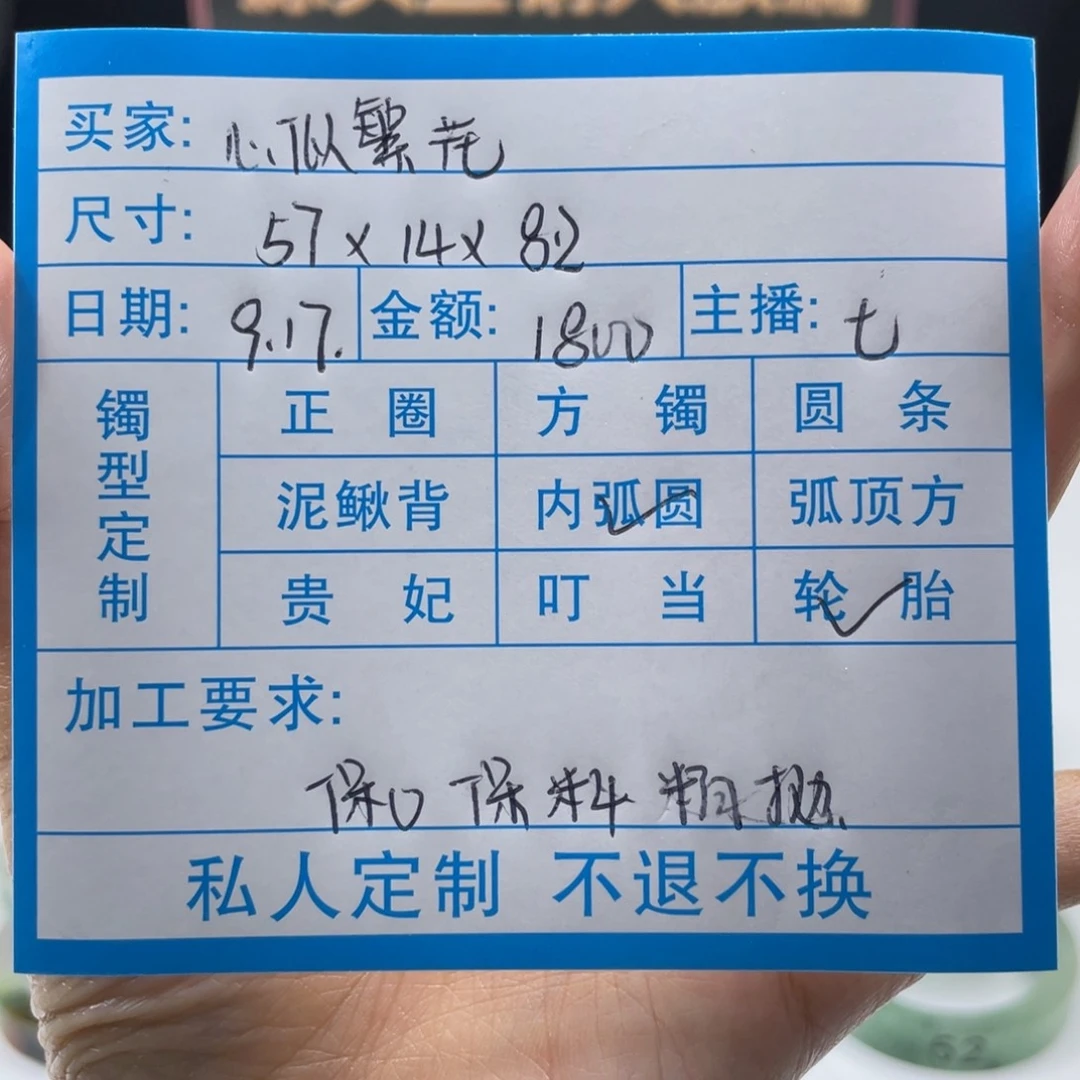 买家: 心似繁花
尺寸: 57×14×8.2
日期: 9.17. 金额: 1800 主播: 七
镯型定制
正圈 方镯 圆条
泥鳅背 内弧圆 弧顶方
贵妃 叮当 轮胎
加工要求:
保口保料 精抛.
私人定制 不退不换
62